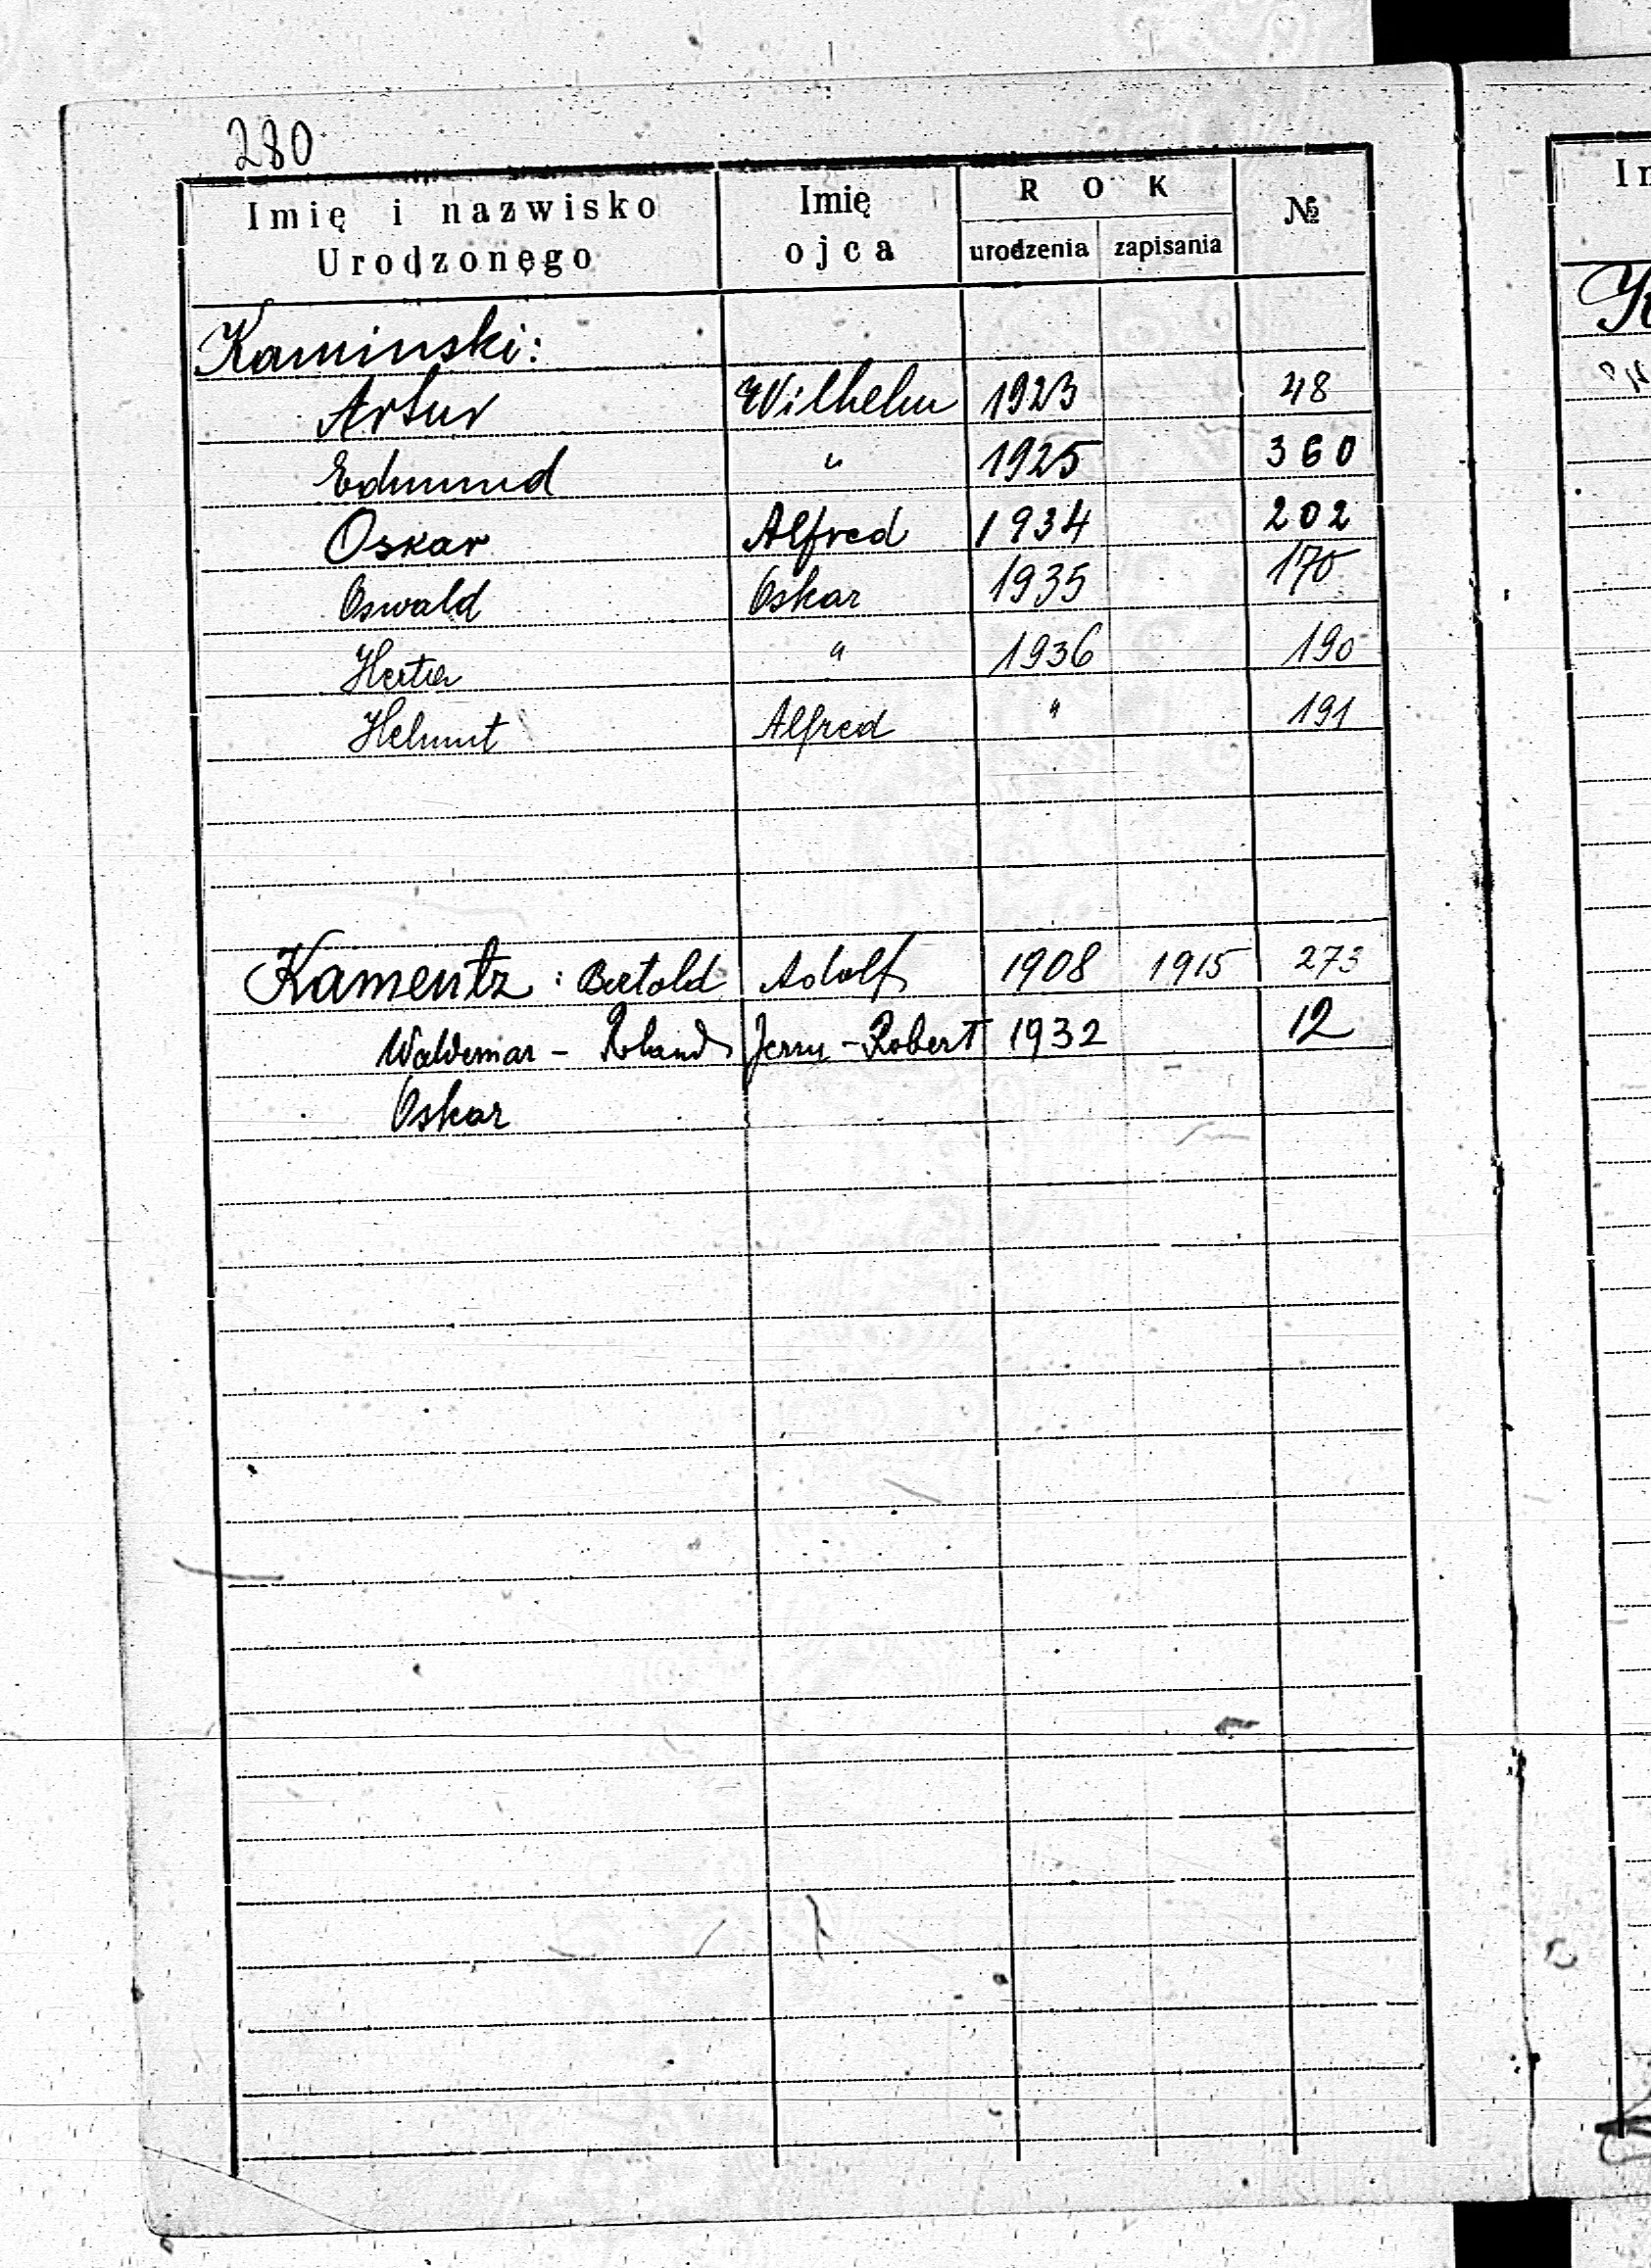 280
Imię i nazwisko Urodzonego
Imię ojca
ROK
urodzenia zapisania
№
Kaminski:
Artur Wilhelm 1923 48
Edmund " 1925 360
Oskar Alfred 1934 202
Oswald Oskar 1935 170
Herta " 1936 190
Helmut Alfred " 191
Kamentz: Bertold Adolf 1908 1915 273
Waldemar - Roland Jerzy - Robert 1932 12
Oskar